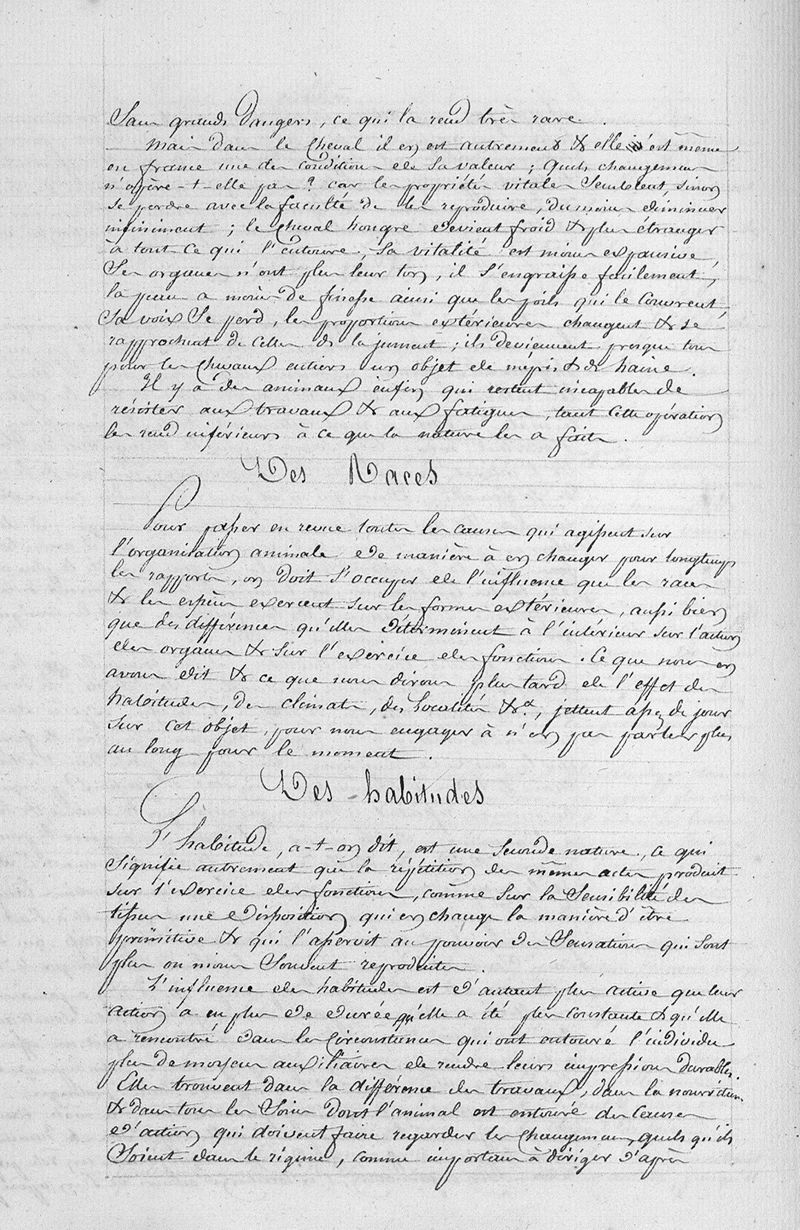 Sans grands dangers, ce qui la rend très rare.
Mais dans le cheval il en est autrement & elle n'est même
en france une des condition de sa valeur ; Quels changemens
n'opère-t-elle pas ? car les propriétés vitales Semblent, sinon
se perdre avec la faculté de les reproduire, du moins diminuer
infiniment ; le cheval hongre devient froid & plus étranger
à tout ce qui l'entoure, Sa vitalité est moins expansive,
Ses organes n'ont plus leur ton, il S'engraisse facilement,
la peau a moins de finesse ainsi que les poils qui le couvrent,
Sa voix Se perd, les proportions extérieures changent & se
rapprochent de celles de la jument ; ils deviennent presque tous
pour les chevaux entiers un objet de mépris & de haine.
Il y a des animaux enfin qui restent incapables de
résister aux travaux & aux fatigues, tant cette opération
les rend inférieurs à ce que la nature les a faits.
Des Races
Pour passer en revue toutes les causes qui agissent sur
l'organisation animale de manière à en changer pour longtemps
les rapports, on doit S'occuper de l'influence que les races
& les espèces exercent sur les formes extérieures, aussi bien
que des différences qu'elles déterminent à l'intérieur sur l'action
des organes & sur l'exercice des fonctions. Ce que nous en
avons dit & ce que nous dirons plus tard de l'effet des
habitudes, des climats, des localités &a, jettent assez de jour
sur cet objet, pour nous engager à n'en pas parler plus
au long pour le moment.
Des habitudes
L'habitude, a-t-on dit, est une seconde nature, ce qui
signifie autrement que la répétition des mêmes actes produit
sur l'exercice des fonctions, comme sur la Sensibilité des
tissus une disposition qui en change la manière d'être
primitive & qui l'asservit au pouvoir des Sensations qui sont
plus ou moins Souvent reproduites.
L'influence des habitudes est d'autant plus active que leur
action a eu plus de durée qu'elle a été plus constante & qu'elle
a rencontré dans les circonstances qui ont entouré l'individu
plus de moyens auxiliaires de rendre leurs impressions durables.
Elles trouvent dans la différence des travaux, dans la nourriture
& dans tous les Soins dont l'animal est entouré des causes
d'action qui doivent faire regarder les changemens, quels qu'ils
Soient dans le régime, comme importans à diriger d'après